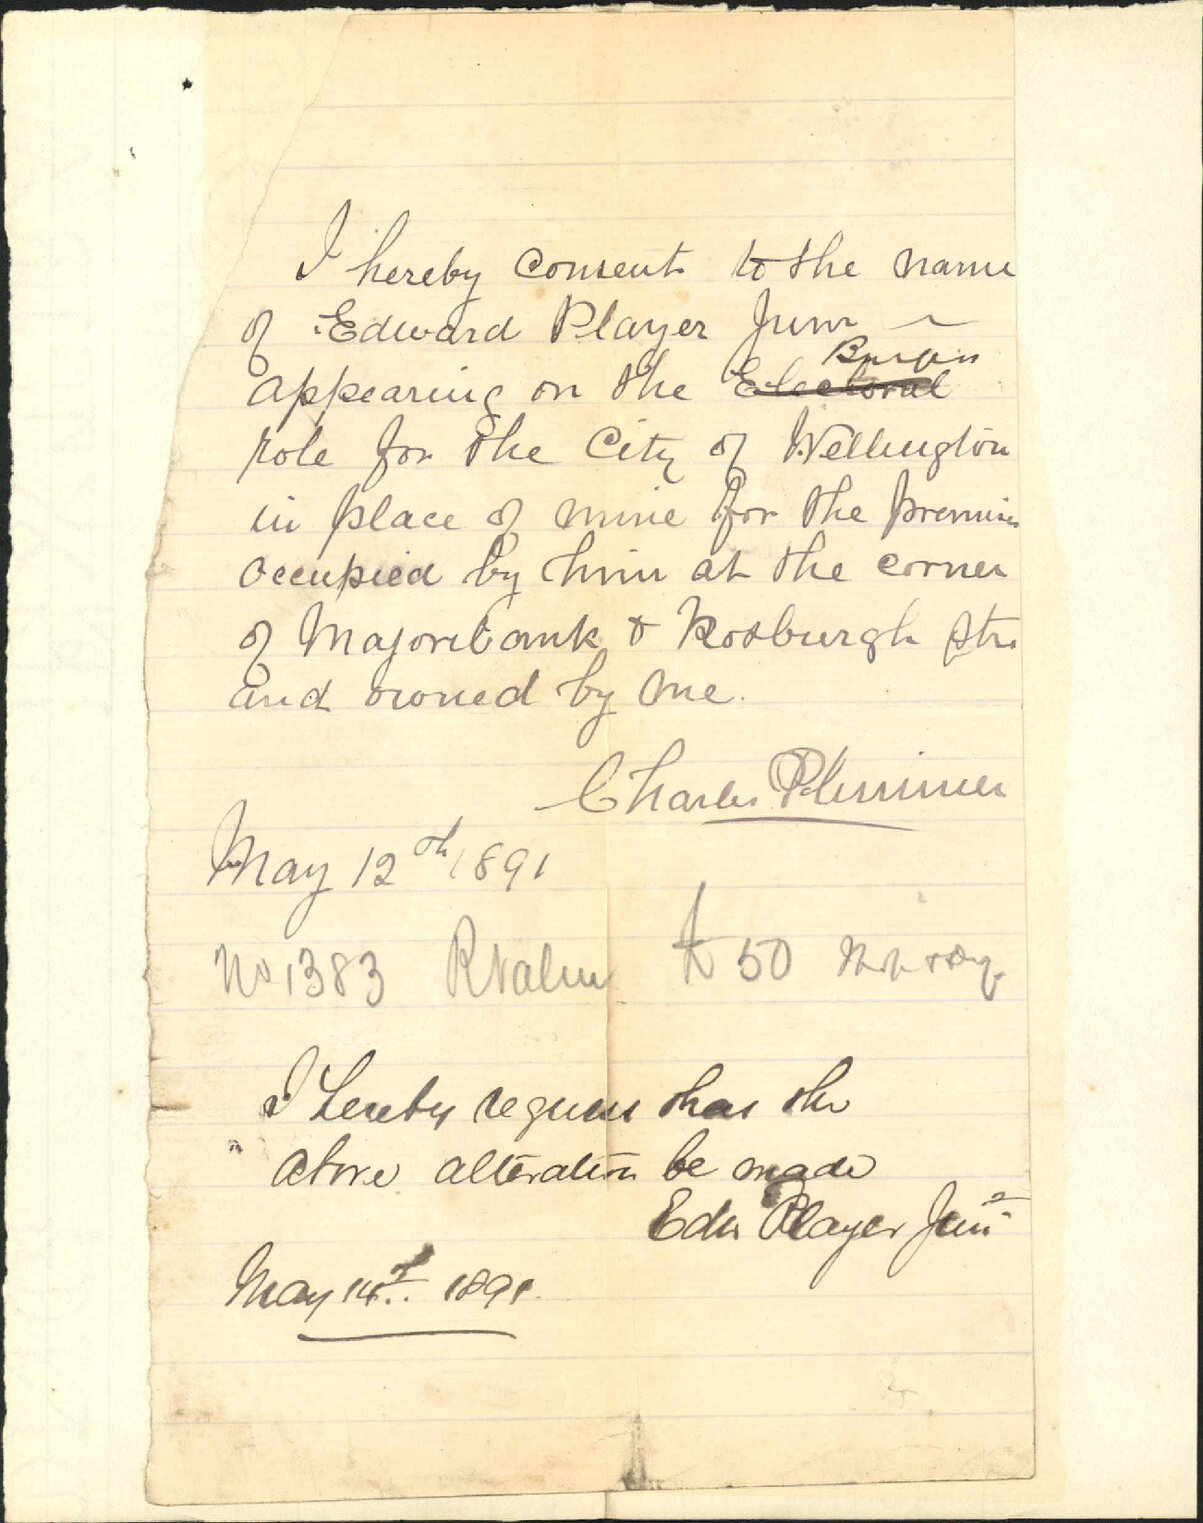 I hereby consent to the name
of Edward Player Junr
Burgess
appearing on the Electoral
role for the City of Wellington
in place of mine for the premises
occupied by him at the corner
of Majoribank & Roxburgh Strs
and owned by me.
Charles Plimmer
May 12th 1891
No 1383 R Value £50
I hereby request that the
above alteration be made
Edw Player Junr
May 14th 1891.